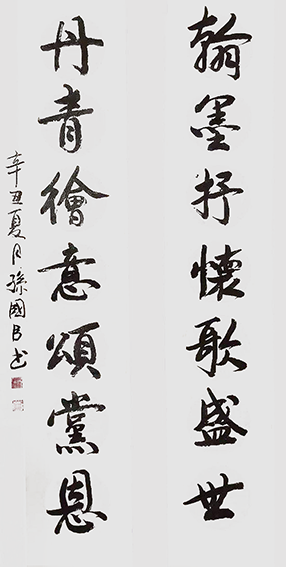 翰墨抒懷歌盛世
丹青繪意頌黨恩
辛丑夏月孫國良书